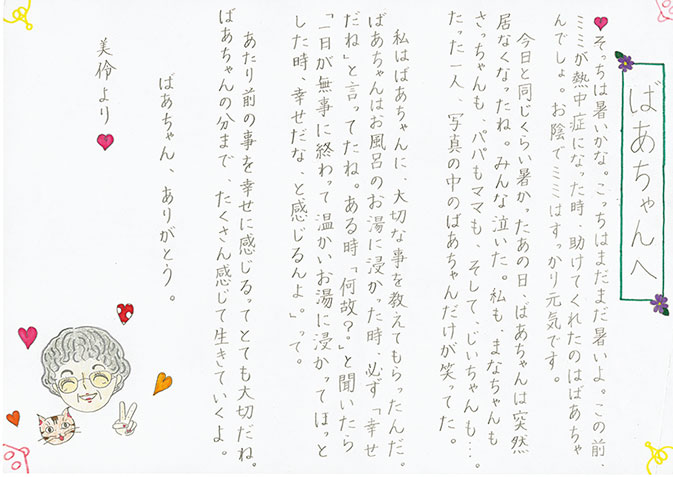 ばあちゃんへ
そっちは暑いかな。こっちはまだまだ暑いよ。この前、
ミミが熱中症になった時、助けてくれたのはばあちゃ
んでしょ。お陰でミミはすっかり元気です。
今日と同じくらい暑かったあの日、ばあちゃんは突然
居なくなったね。みんな泣いた。私も、まなちゃんも
さっちゃんも、パパもママも、そして、じいちゃんも…。
たった一人、写真の中のばあちゃんだけが笑ってた。
私はばあちゃんに、大切な事を教えてもらったんだ。
ばあちゃんはお風呂のお湯に浸かった時、必ず「幸せ
だね」と言ってたね。ある時「何故?」と聞いたら
「一日が無事に終わって温かいお湯に浸かってほっと
した時、幸せだな、と感じるんよ。」って。
あたり前の事を幸せに感じるってとても大切だね。
ばあちゃんの分まで、たくさん感じて生きていくよ。
ばあちゃん、ありがとう。
美伶より